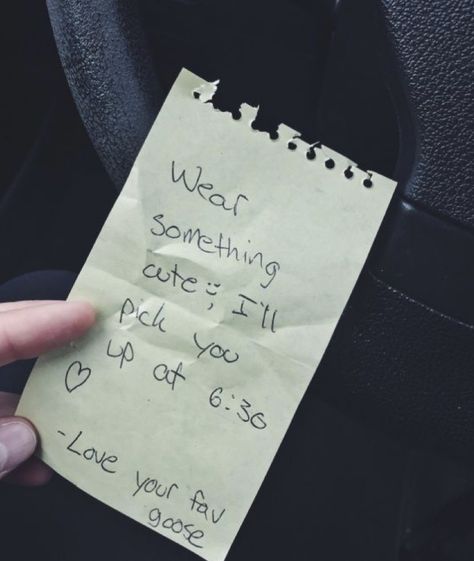 Wear
something
cute :; I'll
pick you
up at 6:30
♡
-Love your fav
goose